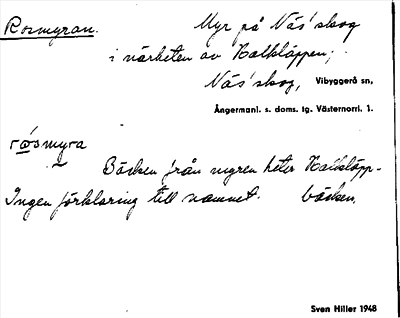 Rosmyran. Myr på Näs'skog
i närheten av Kalkläppen;
Näs'skog, Vibyggerå sn,
Ångermanl. s. doms. tg. Västernorrl. l.
råsmyra
Bäcken från myren heter Kalkläpp-
Ingen förklaring till namnet. bäcken.
Sven Hiller 1948